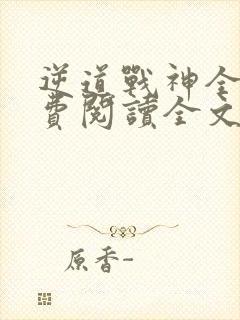 逆道戰神全
費閱讀全文
原香-